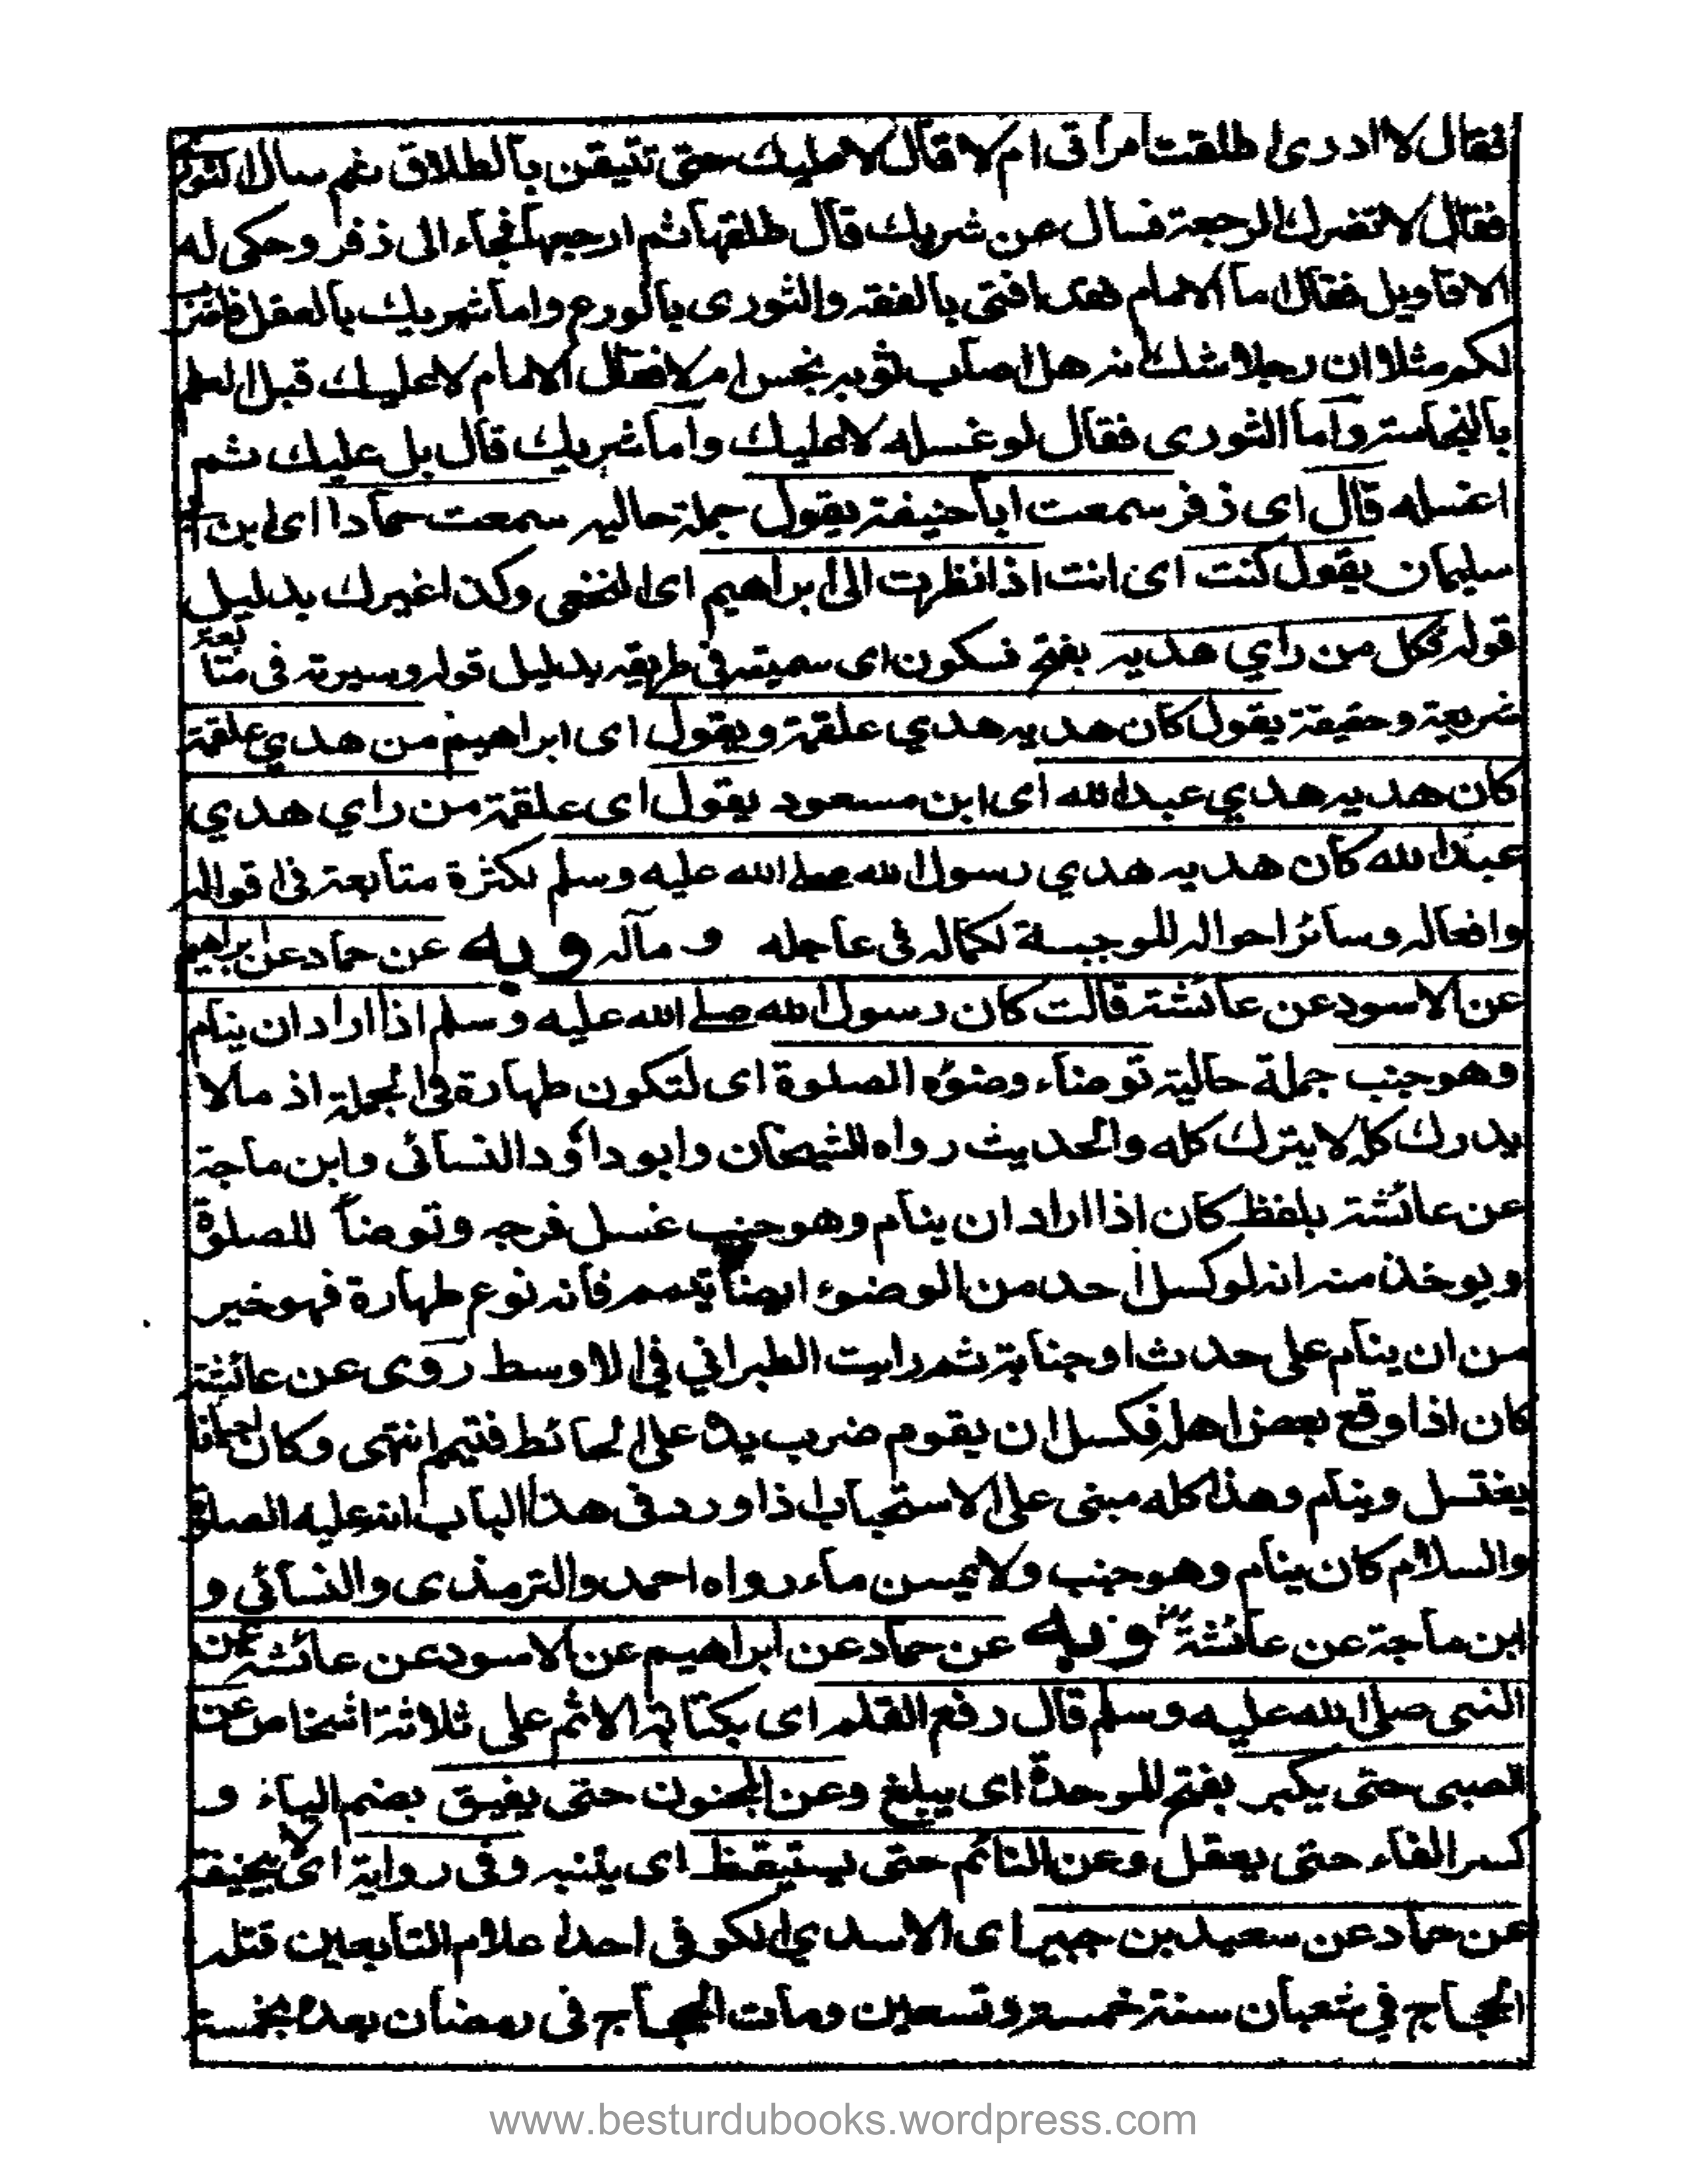 فقال لا ادرى طلقت امرأتى ام لا قال لا عليك حتى تتيقن بالطلاق ثم سال الثورى
فقال لا تضرك الرجعة فسال عن شريك قال طلقها ثم ارجعها فجاء الى زفر وحكى له
الاقاويل فقال اما الامام فقد افتى بالفقه والثورى بالورع واما شريك بالعقل
لكم مثلا ان رجلا شك انه هل اصاب ثوبه نجس ام لا فقال الامام لا عليك قبل العلم
بالنجاسة واما الثورى فقال لو غسله لا عليك واما شريك قال بل عليك ثم
اغسله قال اى زفر سمعت ابا حنيفة يقول جملة حالية سمعت حمادا اى ابن
سليمان يقول كنت اى انت اذا نظرت الى ابراهيم اى النخعى وكذا غيرك بدليل
قوله فكل من راي هديه بفتح فسكون اى سميته فى طريقه بدليل قوله وسيرته فى متابعة
شريعة وحقيقة يقول كان هديه هدي علقمة ويقول اى ابراهيم من هدي علقمة
كان هديه هدي عبد الله اى ابن مسعود يقول اى علقمة من راي هدي
عبد الله كان هديه هدي رسول الله صلے الله عليه وسلم لكثرة متابعته فى اقواله
وافعاله وسائر احواله الموجبة لكماله فى عاجله و مآله وبه عن حماد عن ابراهيم
عن الاسود عن عائشة قالت كان رسول الله صلے الله عليه وسلم اذا اراد ان ينام
وهو جنب جملة حالية توضاء وضوء الصلوة اى لتكون طهارة فى الجملة اذ مالا
يدرك كله لا يترك كله والحديث رواه الشيخان وابو داؤد النسائى وابن ماجة
عن عائشة بلفظ كان اذا اراد ان ينام وهو جنب غسل فرجه وتوضأ للصلوة
ويوخذ منه انه لو كسل احد من الوضوء ايضا تيمم فانه نوع طهارة فهو خير
من ان ينام على حدث او جنابة ثم رايت الطبراني في الاوسط روى عن عائشة
كان اذا وقع بعض اهله فكسل ان يقوم ضرب يده على الحائط فتيمم انتهى وكان احيانا
يغتسل وينام وهذا كله مبنى على الاستحباب اذ اورد فى هذا الباب انه عليه الصلوة
والسلام كان ينام وهو جنب ولا يمس ماء رواه احمد والترمذى والنسائى و
ابن ماجة عن عائشة وبه عن حماد عن ابراهيم عن الاسود عن عائشة عن
النبى صلى الله عليه وسلم قال رفع القلم اى بكتابة الاثم على ثلاثة اشخاص عن
الصبى حتى يكبر بفتح الموحدة اى يبلغ وعن المجنون حتى يفيق بضم الياء و
كسر الفاء حتى يعقل وعن النائم حتى يستيقظ اى ينتبه وفى رواية لابيحنيفة
عن حماد عن سعيد بن جبير اى الاسدي الكوفى احد اعلام التابعين قتله
الحجاج في شعبان سنة خمسة وتسعين ومات الحجاج فى رمضان بعده بخمسة
www.besturdubooks.wordpress.com